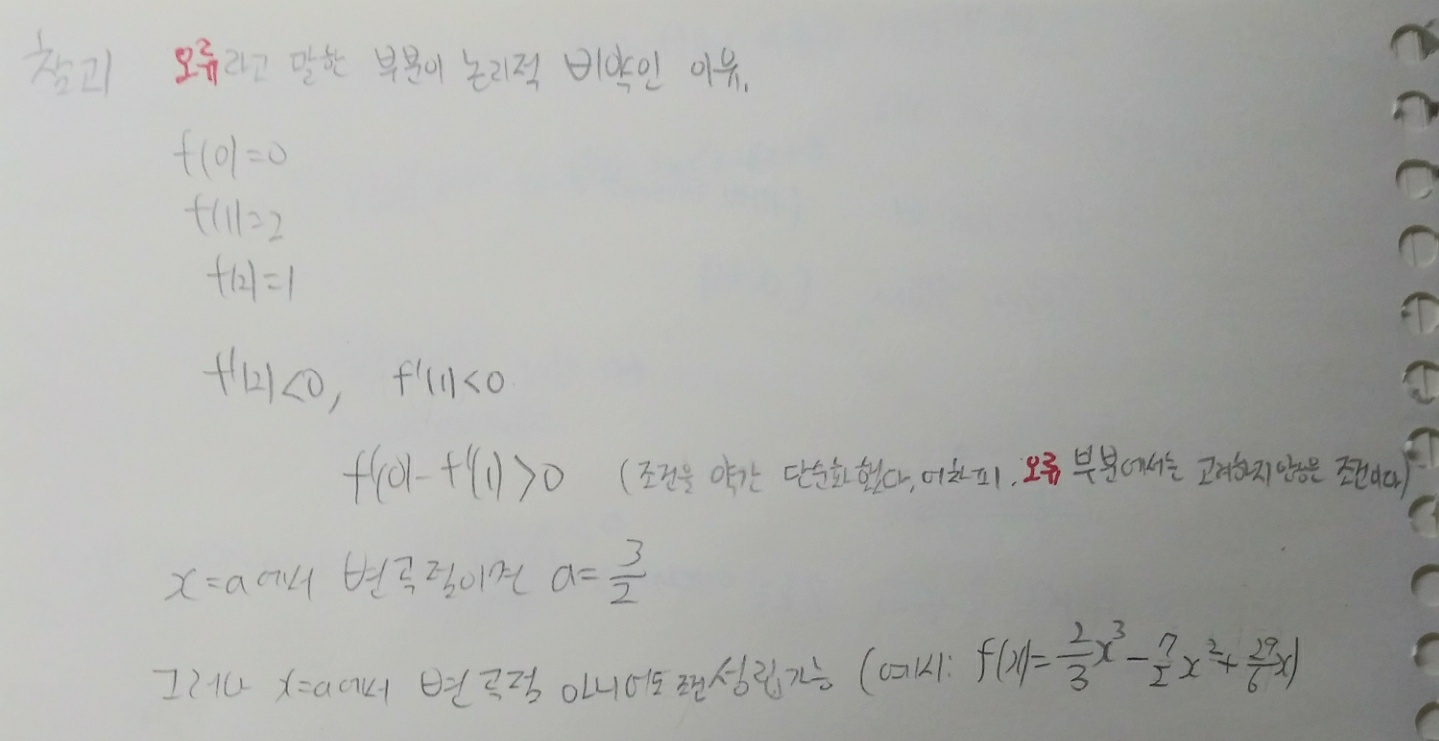 참고 오류라고 말한 부분이 논리적 비약인 이유.
f(0)=0
f(1)=2
f(2)=1
f'(2)<0, f'(1)<0
f'(0)-f'(1)>0 (조건을 약간 단순화했다, 어차피, 오류 부분에서는 고려하지 않은 조건이다)
x=a에서 변곡점이면 a=3/2
그러나 x=a에서 변곡점 아니어도 조건 성립 가능 (예시: f(x)=2/3x³-7/2x²+29/6x)